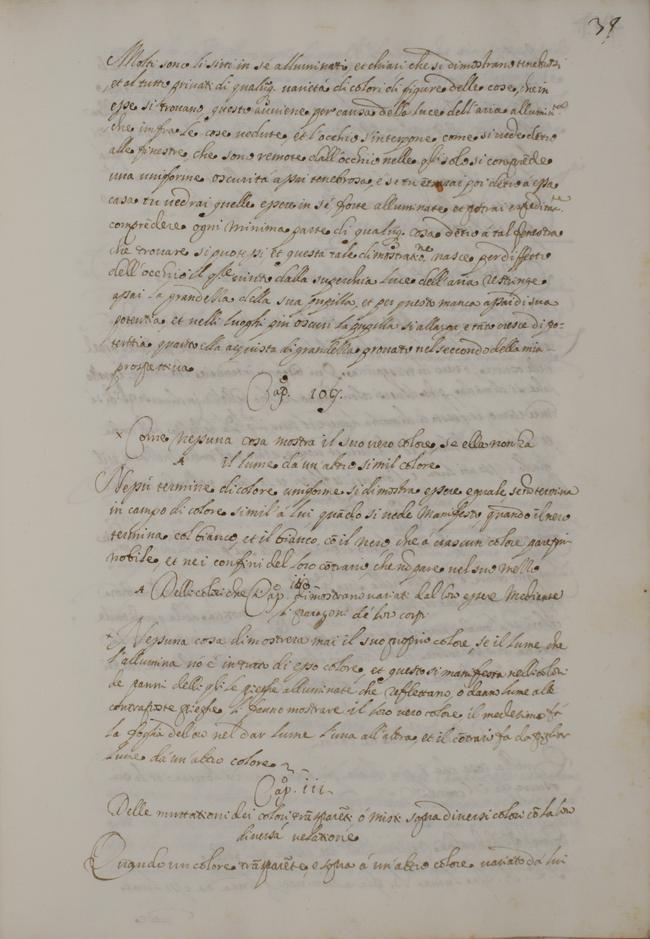 38
Molti sono li siti in se alluminati, et chiari che si dimostrano tenebrosi
et al tutto privati di qualūq; varietá di colori di figure delle cose, che in
esse si trovano, questo aviene per causa della luce dell'aria allumin
che infra le cose vedute, et l'occhio s'interpone come si vede dētro
alle finestre, che sono remote dall'occhio nelle qli solo si comprēde
una uniforme oscuritá assai tenebrosa, e se tu poi dētro á essa
casa tu vedrai quelle essere in sé forte alluminate et potrai espedita.te
comprēdere ogni minima parte di qualūq; cosa dētro á tal fenestra
che trovare si potessi et questa tale dimostratio.ne nasce per diffetto
dell'occhio il qle vinto dalla superchia luce dell'aria restringe
assai la grandezza della sua pupilla, et per questo manca assai di sua
potentia, et nelli luoghi piu oscuri la pupilla si allarga e tāto cresce di po-
tentia quāto ella acquista di grandezza, provato nel secondo della mia
prospettiva.
Cap.o 109.
+ Come nessuna cosa mostra il suo vero colore, se ella non ha
il lume da un'altro simil colore
Nessū termine di colore uniforme si dimostra essere eguale se nō termina
in campo di colore simil' á lui, quesTo si vede Manifesto quando il nero
termina col bianco, et il bianco, cō il nero che á ciascun colore pare piu
nobile, et ne i confini del loro cōtrario, che nō pare nel suo mezzo
Delli colori che Cap.o 110 si dimostrano variati dal loro essere Mediante
i paragoni de lor campi
+ Nessuna cosa dimostrerá mai il suo proprio colore, se il lume che
l'allumina nō é in tutto di esso colore, et questo si manifesta nelli colori
de panni delli qli le pieghe alluminate che reflettano, ó danno lume alle
contraposte pieghe li fanno mostrare il loro vero colore, il medesimo fa
la foglia dell'oro nel dar lume l'una all'altra, et il cōtrario fa da pigliar
lume da un'altro colore.
Cap.o 111.
Delle muttationi dei colori trāsparēti ó misti sopra diversi colori cō la lor
diversa velatione
Quando un colore trāsparēte, é sopra á un'altro colore variato da lui